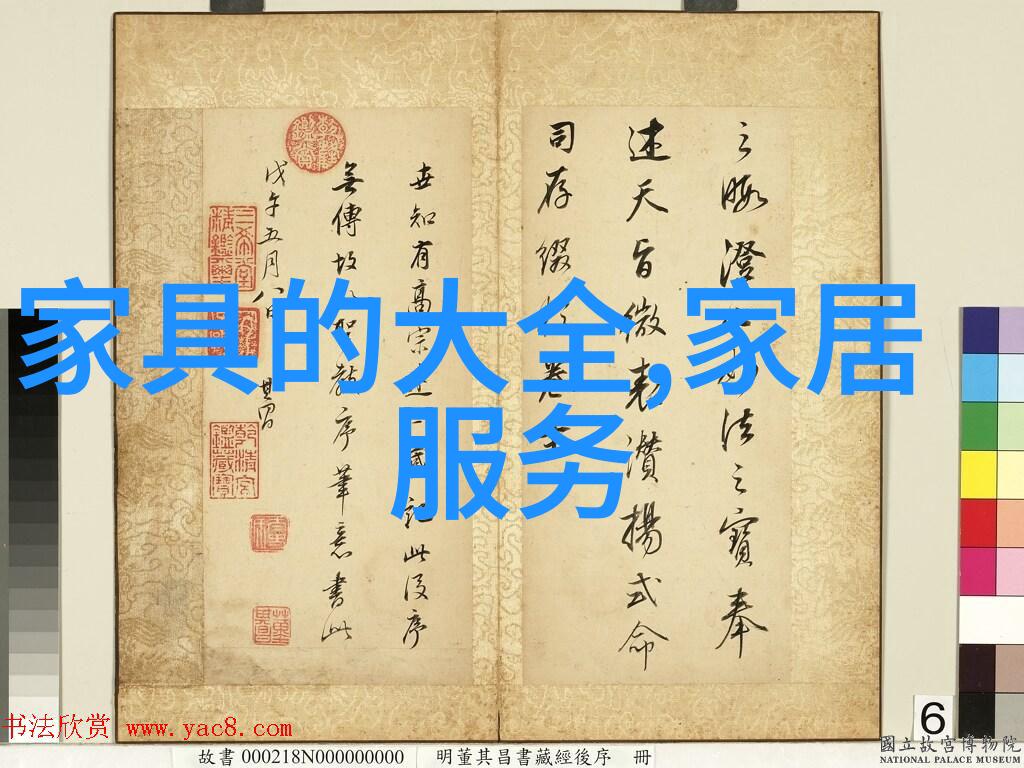 家具的大全,家居
服务
之澄法之寶奉
述天旨微表讚揚式命
司存綴卷
世知有高宗記此後序
無傳故序筆意書此
戊午五月八日 其昌
6
书法欣赏 www.yac8.com
故書 000218N000000000 明董其昌書藏經後序 冊
國立故宮博物院
NATIONAL PALACE MUSEUM